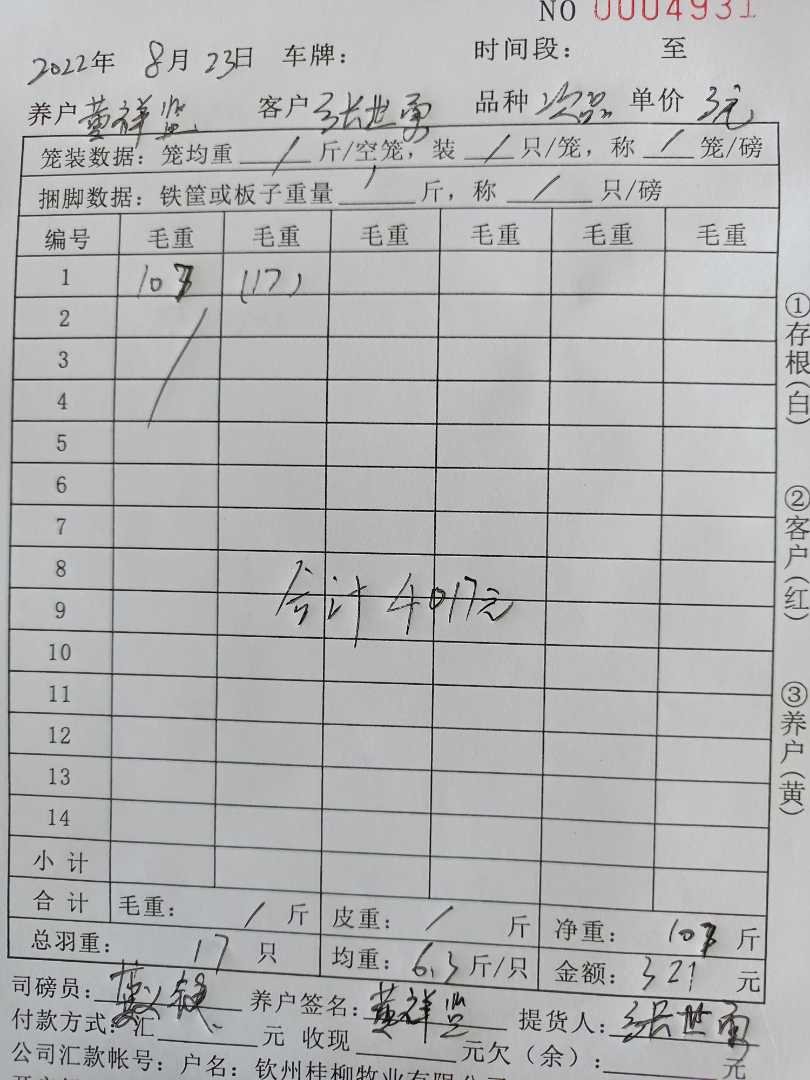 NO 0004931
2022年 8月 23日 车牌: 时间段: 至
养户 黄祥监 客户 张世勇 品种 次品 单价 3元
笼装数据: 笼均重 / 斤/空笼, 装 / 只/笼, 称 / 笼/磅
捆脚数据: 铁筐或板子重量 / 斤, 称 / 只/磅
编号 毛重 毛重 毛重 毛重 毛重 毛重
1 107 (17)
2
3
4
5
6
7
8
合计 4017元
9
10
11
12
13
14
小计
合计 毛重: / 斤 皮重: / 斤 净重: 107 斤
总羽重: 17 只 均重: 6.3 斤/只 金额: 321 元
司磅员: 养户签名: 黄祥监 提货人: 张世勇
付款方式: 汇 元 收现 元欠(余): 元
公司汇款帐号: 户名: 钦州桂柳牧业有限公司
①存根(白)
②客户(红)
③养户(黄)